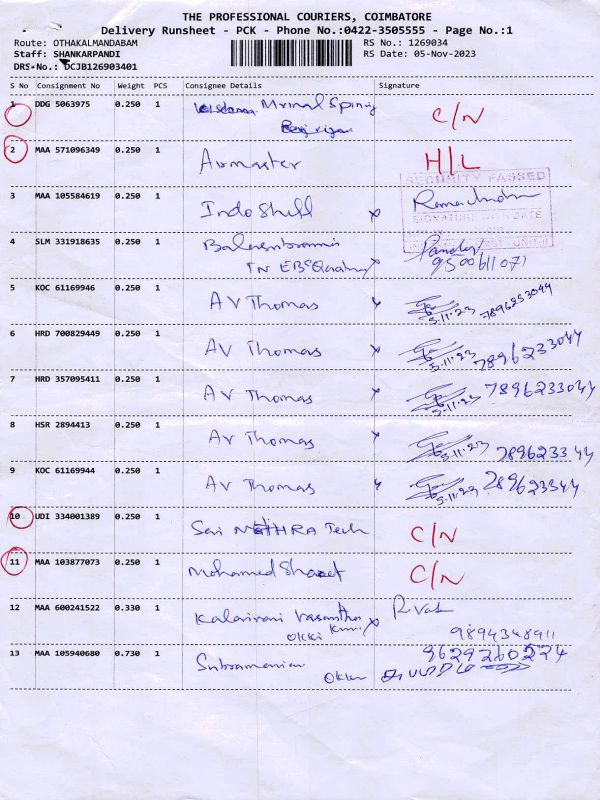 THE PROFESSIONAL COURIERS, COIMBATORE
Delivery Runsheet - PCK - Phone No.:0422-3505555 - Page No.:1
Route: OTHAKALMANDABAM RS No.: 1269034
Staff: SHANKARPANDI RS Date: 05-Nov-2023
DRS-No.: DCJB126903401
S No Consignment No Weight PCS Consignee Details Signature
1 DDG 5063975 0.250 1 Mrinal Spinng C/N
2 MAA 571096349 0.250 1 Airmaster H/L
SECURITY PASSED
3 MAA 105584619 0.250 1 Indo Shell x
SIGNATURE WITH DATE
4 SLM 331918635 0.250 1
TN EB x 9500611071
5 KOC 61169946 0.250 1 AV Thomas x 5.11.23 7896233044
6 HRD 700829449 0.250 1 AV Thomas x 5.11.23 7896233044
7 HRD 357095411 0.250 1 AV Thomas x 5.11.23 7896233044
8 HSR 2894413 0.250 1 AV Thomas x 5.11.23 7896233044
9 KOC 61169944 0.250 1 AV Thomas 5.11.23 7896233044
10 UDI 334001389 0.250 1 Sri NETHRA Tech C/N
11 MAA 103877073 0.250 1 Mohamed C/N
12 MAA 600241522 0.330 1 Kalaivani Vasantha x
Okki 9894348911
13 MAA 105940680 0.730 1 Subramanian 9629260224